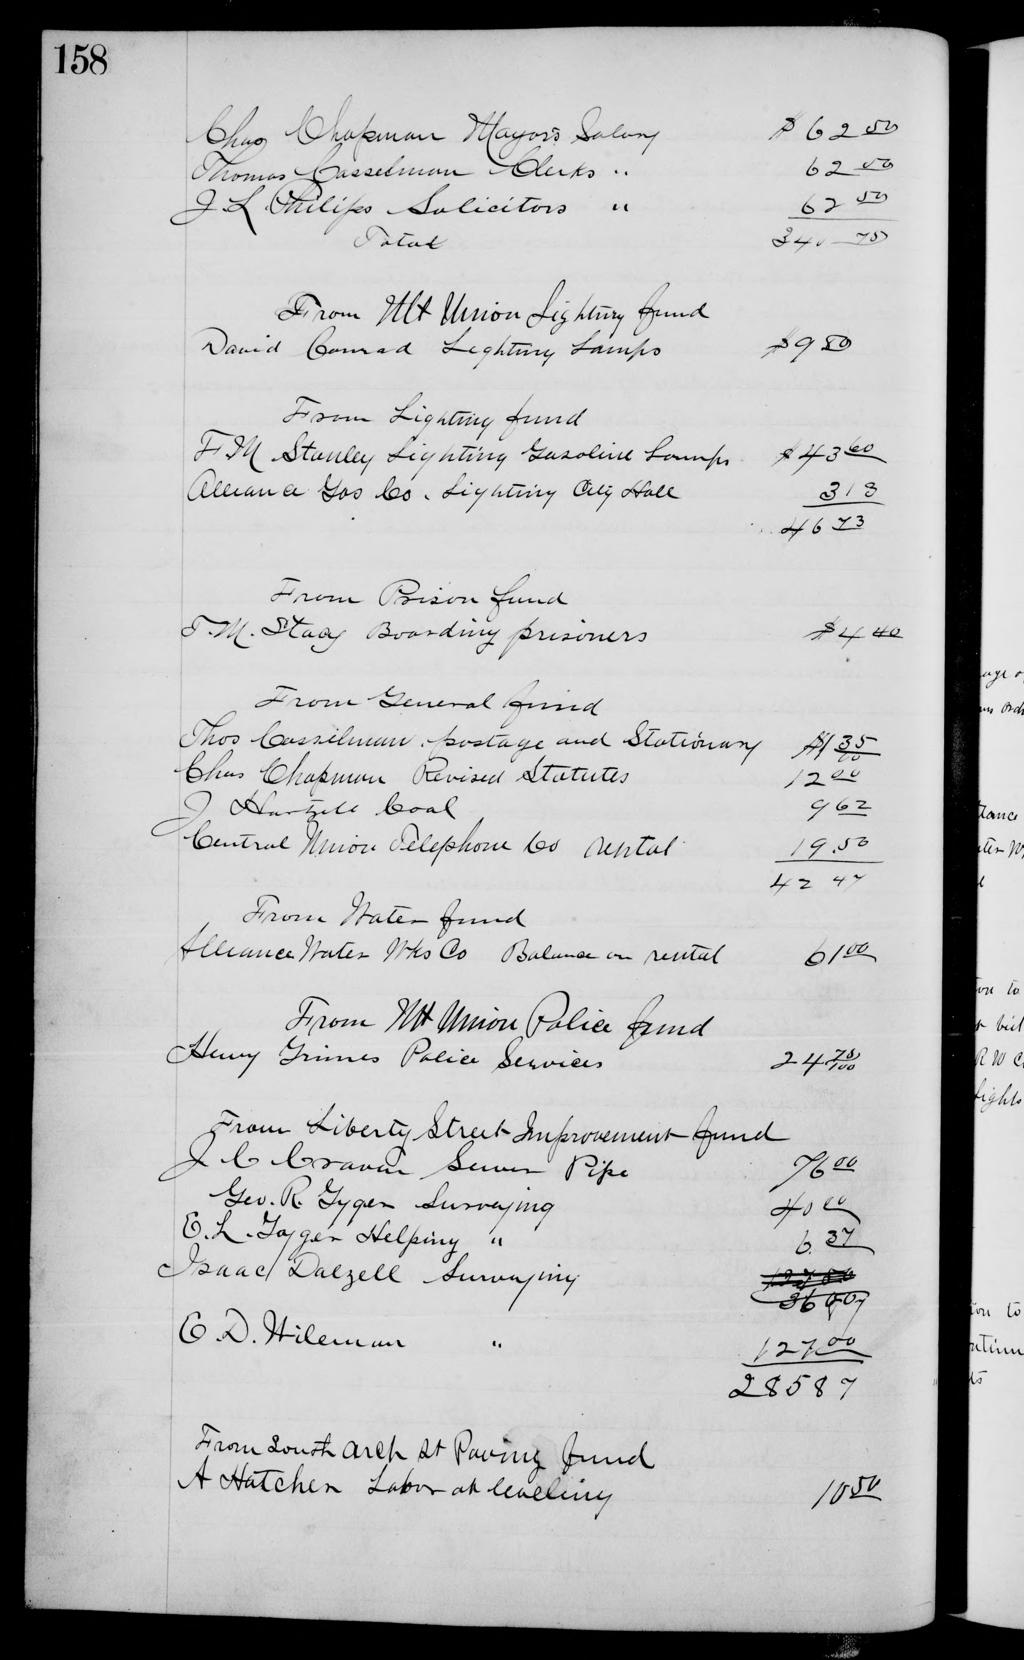 158
Chas Chapman Mayors Salary $62 50
Thomas Casselman Clerks " 62 50
J L Philips Solicitors " 62 50
Total 340 75
From Mt Union Lighting fund
David Conrad Lighting Lamps $9 80
From Lighting fund
F M Stanley Lighting Gasoline Lamps $43 60
Alliance Gas Co. Lighting City Hall 3 13
46 73
From Prison fund
T. M. Stacy Boarding prisoners $4 40
From General fund
Thos Casselman. postage and Stationary $1 35/00
Chas Chapman Revised Statutes 12 00
J Hartzell Coal 9 62
Central Union Telephone Co rental 19.50
42 47
From Water fund
Alliance Water Wks Co Balance on rental 61 00
From Mt Union Police fund
Henry Grimes Police Services 24 75/100
From Liberty Street Improvement fund
J C Craven Sewer Pipe 76 00
Geo. R. Gyger Surveying 40 00
E. L. Gyger Helping " 6.37
Isaac Dalzell Surveying 36 00
E. D. Wileman " 127 00
285 87
From South Arch St Paving fund
A Hatcher Labor at leveling 10 50